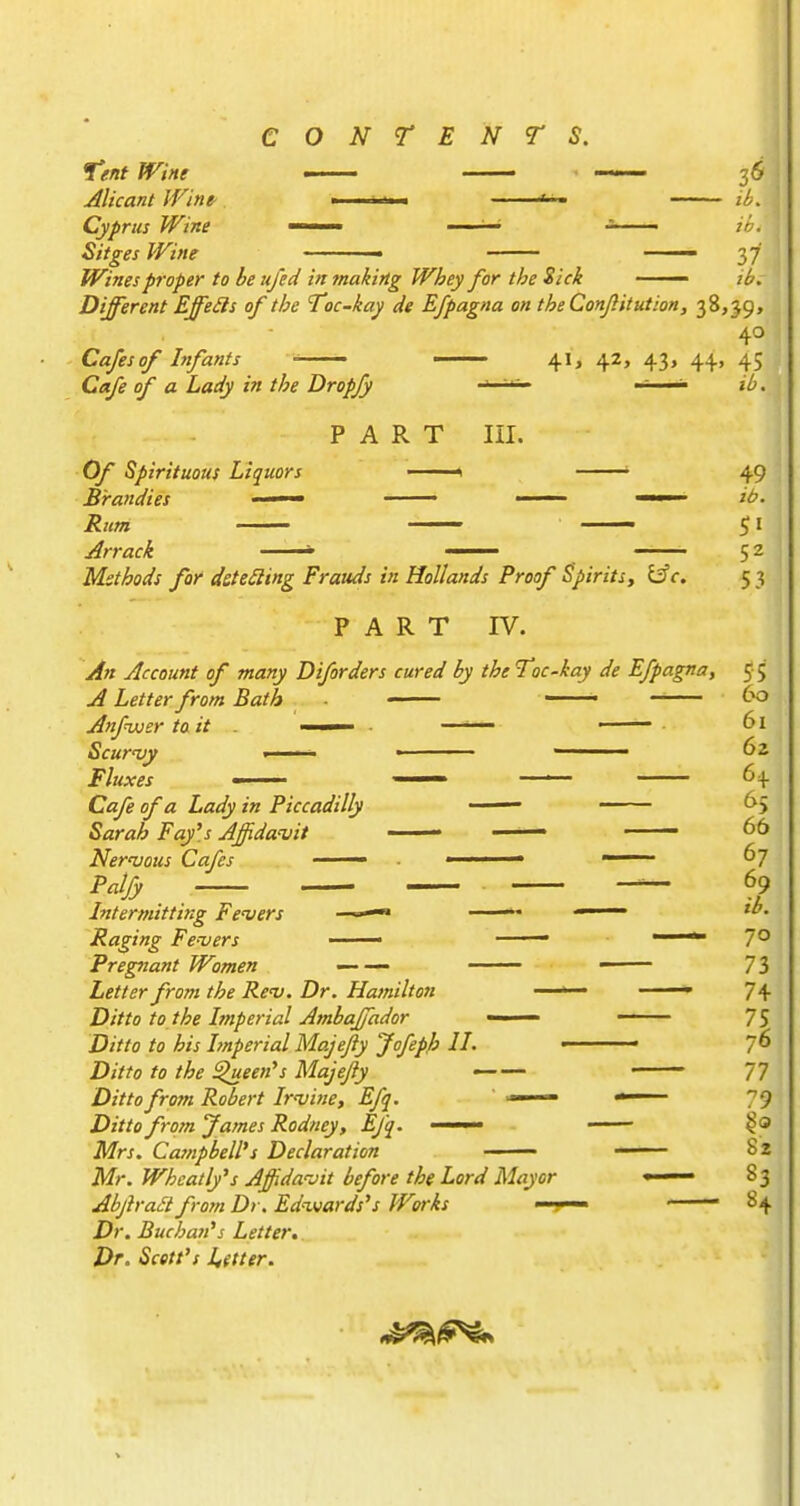 CONTENTS.
Tent Wine —— —— —— 36
Alicant Wine —— —— —— ib.
Cyprus Wine —— —— —— ib.
Sitges Wine —— —— —— 37
Wines proper to be uſed in making Whey for the Sick —— ib.
Different Effects of the Toc-kay de Eſpagna on the Conſtitution, 38,39,
40
Caſes of Infants —— —— 41, 42, 43, 44, 45
Caſe of a Lady in the Dropſy —— —— ib.
PART III.
Of Spirituous Liquors —— —— 49
Brandies —— —— —— —— ib.
Rum —— —— —— 51
Arrack —— —— —— 52
Methods for detecting Frauds in Hollands Proof Spirits, &c. 53
PART IV.
An Account of many Diſorders cured by the Toc-kay de Eſpagna, 55
A Letter from Bath —— —— —— 60
Anſwer to it —— —— —— 61
Scurvy —— —— —— 62
Fluxes —— —— —— —— 64
Caſe of a Lady in Piccadilly —— —— 65
Sarah Fay's Affidavit —— —— —— 66
Nervous Caſes —— —— —— 67
Palſy —— —— —— —— —— 69
Intermitting Fevers —— —— —— ib.
Raging Fevers —— —— —— 70
Pregnant Women —— —— —— 73
Letter from the Rev. Dr. Hamilton —— —— 74
Ditto to the Imperial Ambaſſador —— —— 75
Ditto to his Imperial Majeſty Joſeph II. —— 76
Ditto to the Queen's Majeſty —— —— 77
Ditto from Robert Irvine, Eſq. —— —— 79
Ditto from James Rodney, Eſq. —— —— 80
Mrs. Campbell's Declaration —— —— 82
Mr. Wheatly's Affidavit before the Lord Mayor —— 83
Abſtract from Dr. Edwards's Works —— —— 84
Dr. Buchan's Letter.
Dr. Scott's Letter.